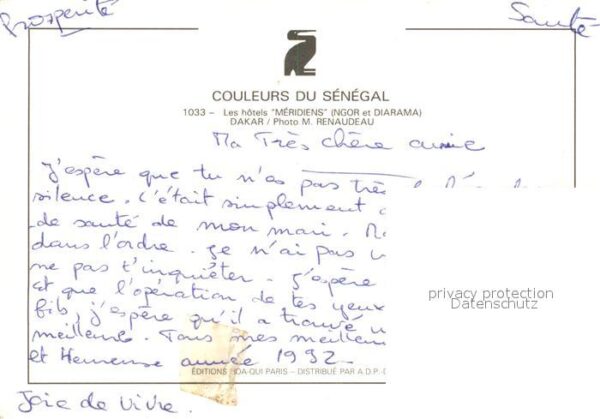 Prospérité
Santé
COULEURS DU SÉNÉGAL
1033 - Les hôtels "MÉRIDIENS" (NGOR et DIARAMA)
DAKAR / Photo M. RENAUDEAU
Ma Très chère amie
J'espère que tu n'es pas très
silence. C'était simplement
de santé de mon mari.
dans l'ordre. Je n'ai pas
ne pas t'inquiéter. J'espère
et que l'opération de tes yeux
fils, j'espère qu'il a trouvé
meilleure. Tous mes meilleurs
et Heureuse année 1992
privacy protection
Datenschutz
ÉDITIONS HOA-QUI PARIS - DISTRIBUÉ PAR A.D.P.
Joie de vivre.